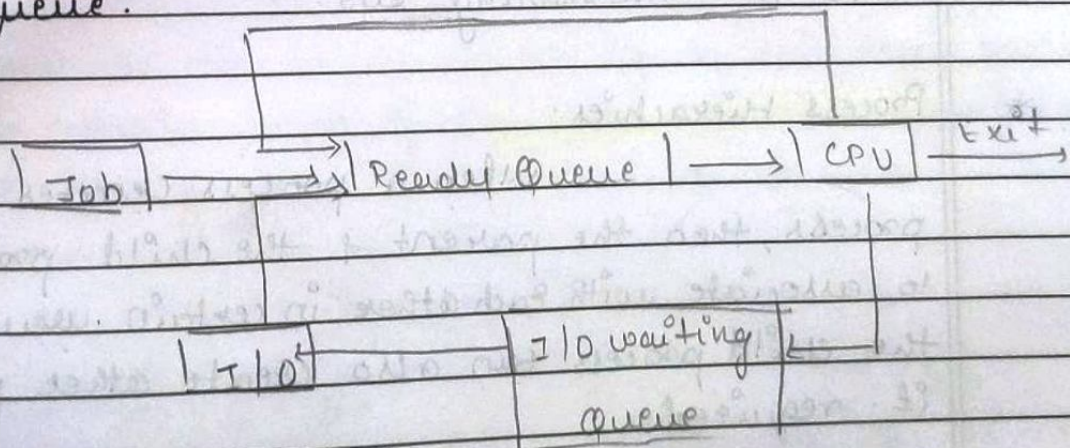 ueue.
Job Ready Queue CPU Exit
I/O I/O waiting
queue